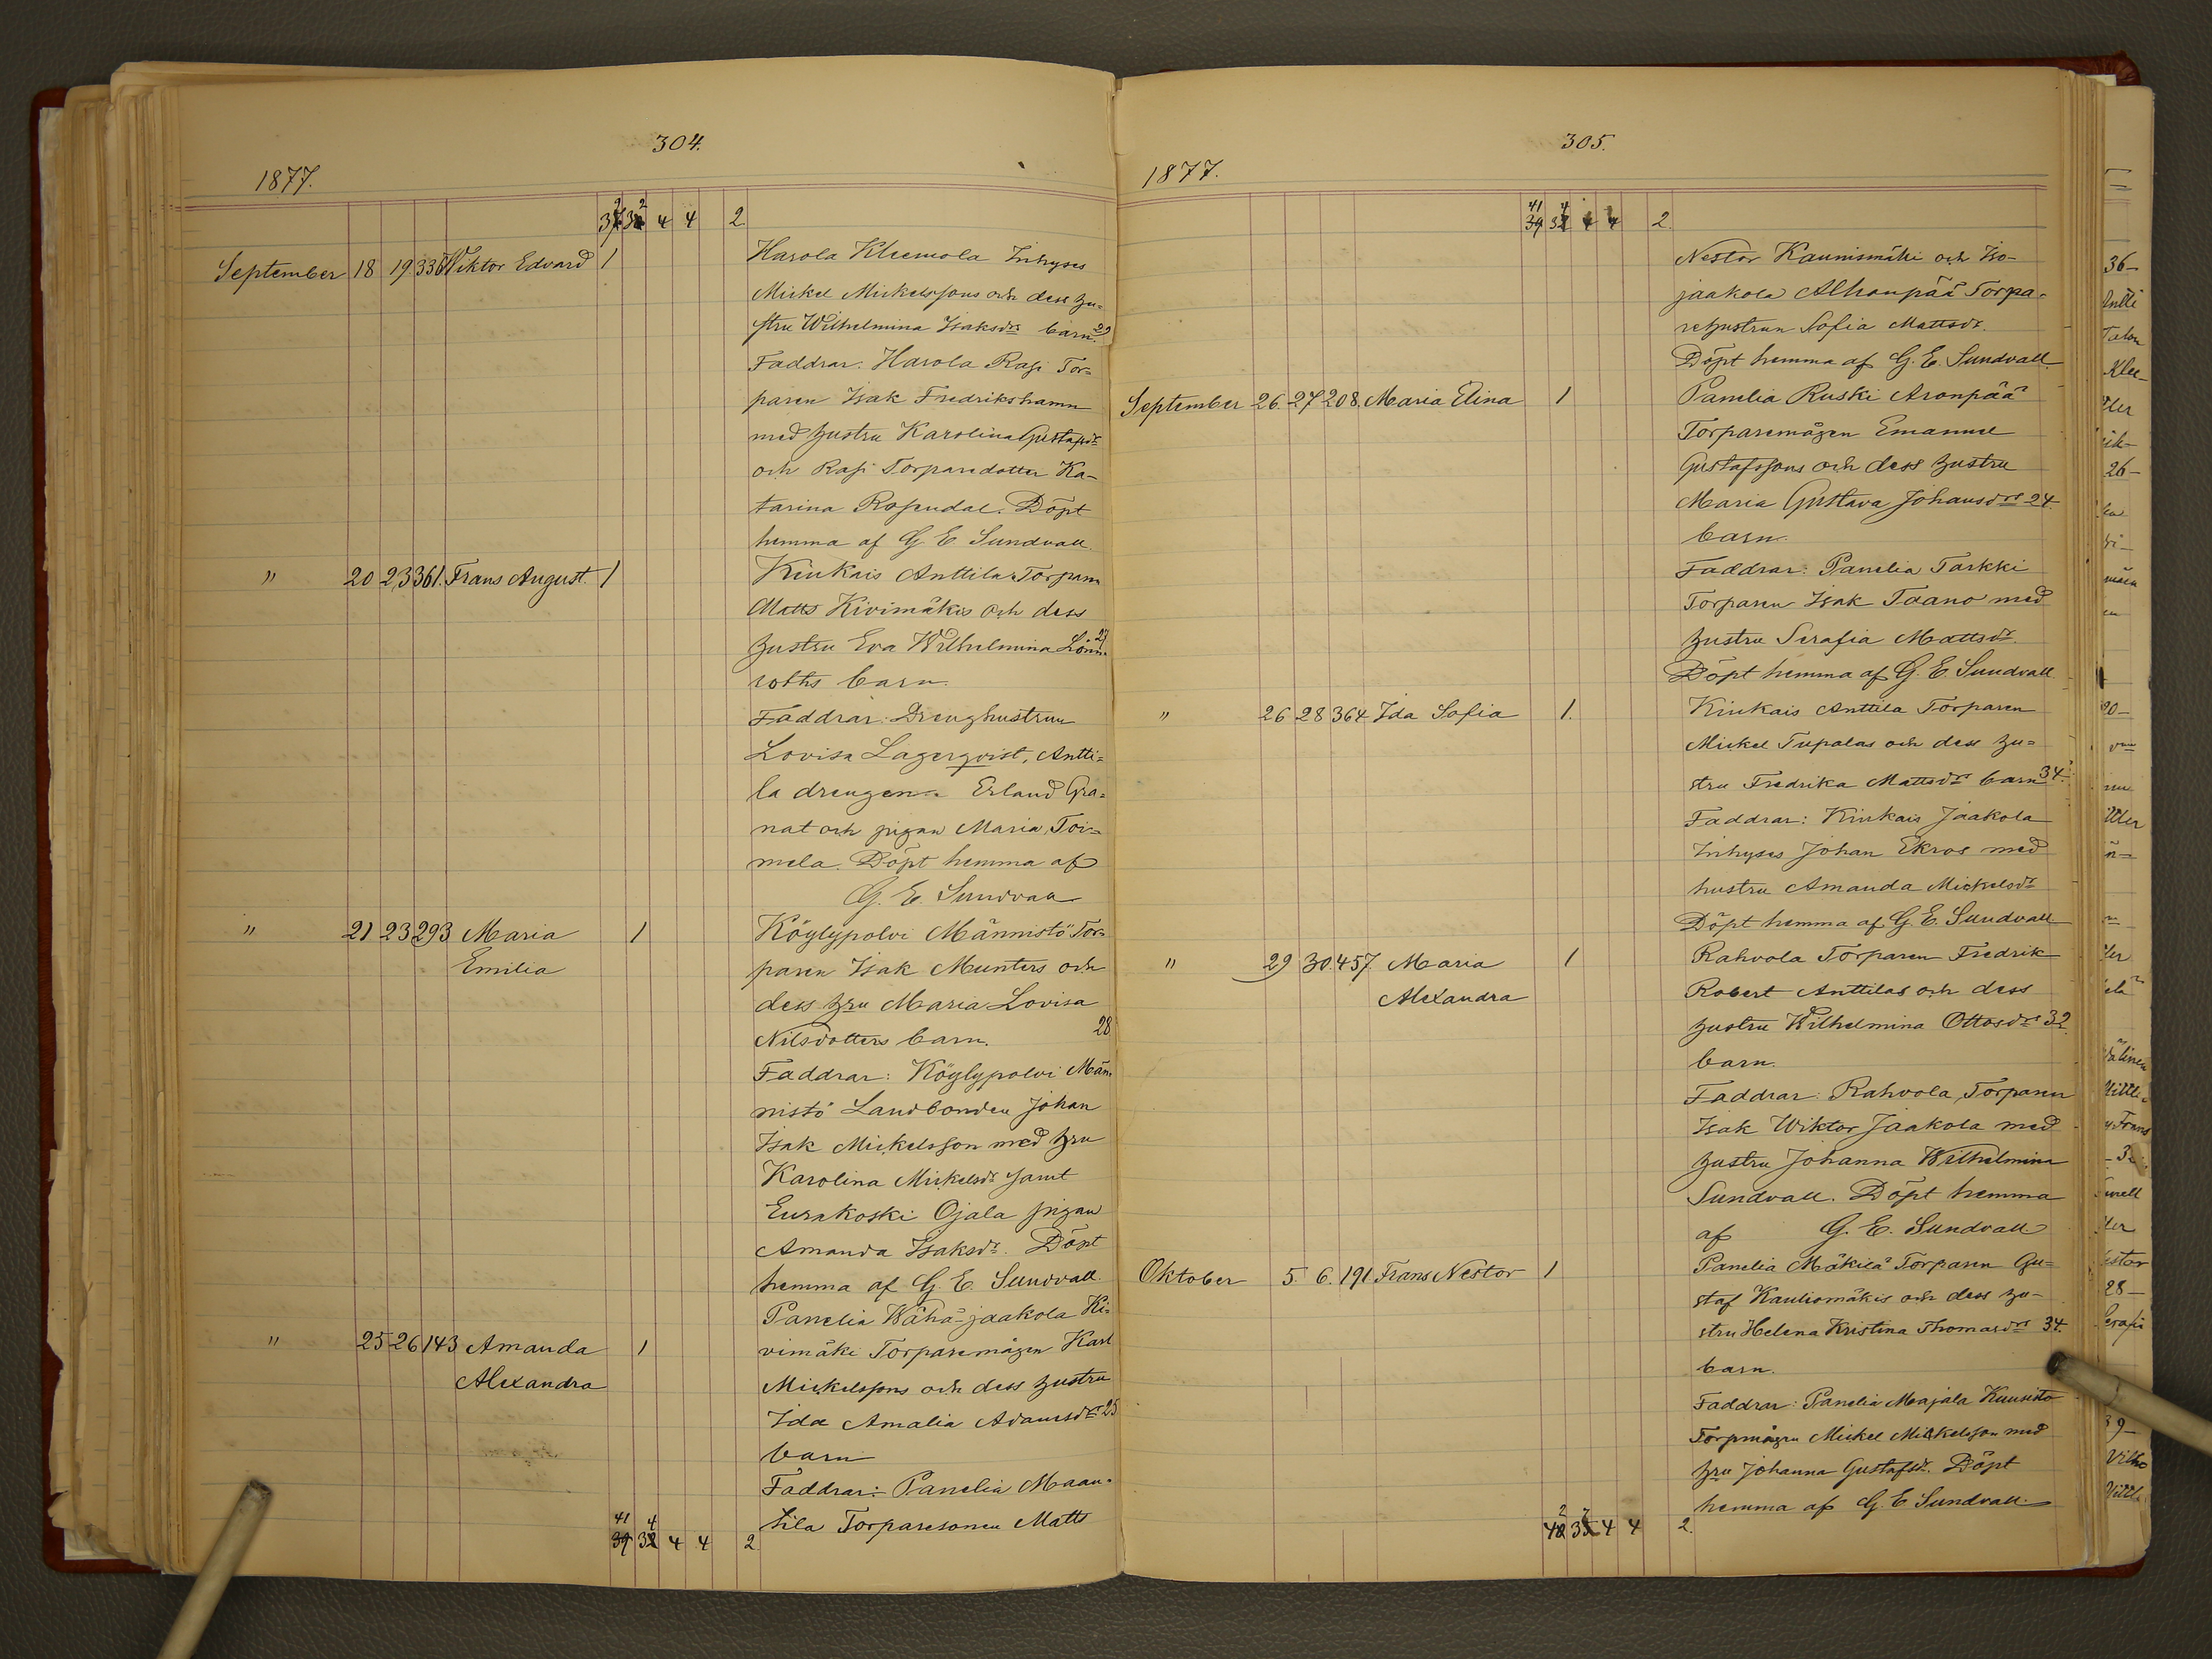 304.
1877.
37 2 32 2 4 4 2
September 18 19 336 Wiktor Edvard 1
Harola Kleemola Inhyses
Mickel Mickelssons och dess hu-
stru Wilhelmina Isaksdrs barn. 29
Faddrar: Harola Rasi Tor-
paren Isak Fredrikshamn
med hustru Karolina Gustafsdr
och Rasi Torparedotter Ka-
tarina Rosendal. Döpt
hemma af G. E. Sundvall.
" 20 23 361. Frans August. 1
Kiukais Anttila Torparen
Matts Kivimäkis och dess
hustru Eva Wilhelmina Lönn- 27
roths barn.
Faddrar: Drenghustrun
Lovisa Lagerqvist, Antti-
la drengen Erland Gra-
nat och pigan Maria Toi-
mela. Döpt hemma af
G. E. Sundvall
" 21 23 293 Maria 1
Emilia
Köylypolvi Männistö Tor-
paren Isak Munters och
dess hru Maria Lovisa
Nilsdotters barn. 28
Faddrar: Köylypolvi Män-
nistö Landbonden Johan
Isak Mickelsson med hru
Karolina Mickelsdr samt
Eurakoski Ojala pigan
Amanda Isaksdr. Döpt
hemma af G. E. Sundvall.
" 25 26 143 Amanda 1
Alexandra
Panelia Wähä-jaakola Ki-
vimäki Torparemågen Karl
Mickelssons och dess hustru
Ida Amalia Adamsdrs 25
barn
Faddrar: Panelia Maan-
tila Torparesonen Matts
41 39 4 32 4 4 2
305.
1877.
41 39 4 32 4 4 2.
Nestor Kaunismäki och Iso-
jaakola Alhonpää Torpa-
rehustrun Sofia Mattsdr.
Döpt hemma af G. E. Sundvall.
September 26. 27 208. Maria Elina 1
Panelia Ruski Aronpää
Torparemågen Emanuel
Gustafssons och dess hustru
Maria Gustava Johansdrs 24.
barn.
Faddrar: Panelia Tarkki
Torparen Isak Taano med
hustru Serafia Mattsdr.
Döpt hemma af G. E. Sundvall
" 26 28 364 Ida Sofia 1.
Kiukais Anttila Torparen
Mickel Tupalas och dess hu-
stru Fredrika Mattsdrs barn 34.
Faddrar: Kiukais Jaakola
Inhyses Johan Ekros med
hustru Amanda Mickelsdr
Döpt hemma af G. E. Sundvall
" 29 30. 457. Maria 1
Alexandra
Rahvola Torparen Fredrik
Robert Anttilas och dess
hustru Wilhelmina Ottosdrs 32.
barn.
Faddrar: Rahvola Torparen
Isak Wiktor Jaakola med
hustru Johanna Wilhelmina
Sundvall. Döpt hemma
af G. E. Sundvall.
Oktober 5. 6. 191. Frans Nestor 1
Panelia Mäkilä Torparen Gu-
staf Kauliomäkis och dess hu-
stru Helena Kristina Thomasdrs 34.
barn.
Faddrar: Panelia Majala Kuusisto
Torpmågen Mickel Mickelsson med
hru Johanna Gustafsdr. Döpt
hemma af G. E. Sundvall.
4 4 2.